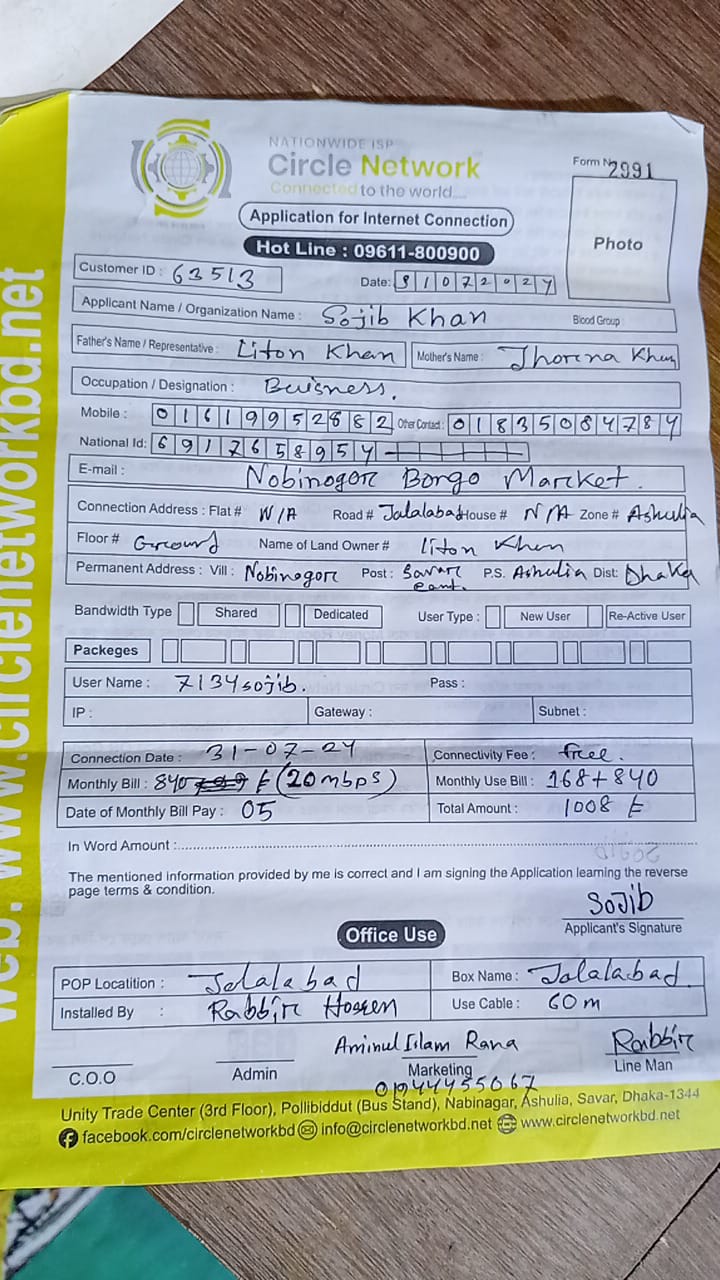 NATIONWIDE ISP
Circle Network
Connected to the world....
Form No 2991
Application for Internet Connection
Photo
Hot Line : 09611-800900
Customer ID : 63513 Date: 31072024
Applicant Name / Organization Name : Sojib Khan Blood Group
Father's Name / Representative : Liton Khan Mother's Name : Jhorina Khan
Occupation / Designation : Buisness.
Mobile : 01619952882 Other Contact : 01835084784
National Id: 6917658954
E-mail : Nobinogor Borgo Market.
Connection Address : Flat # N/A Road # Jalalabad House # N/A Zone # Ashulia
Floor # Ground Name of Land Owner # Liton Khan
Permanent Address : Vill : Nobinogor Post : Savar cant. P.S. Ashulia Dist: Dhaka
Bandwidth Type Shared Dedicated User Type : New User Re-Active User
Packeges
User Name : 7134sojib. Pass :
IP : Gateway : Subnet :
Connection Date : 31-07-24 Connectivity Fee : free.
Monthly Bill : 840 ৳ (20mbps) Monthly Use Bill : 168+840
Date of Monthly Bill Pay : 05 Total Amount : 1008 ৳
In Word Amount :
The mentioned information provided by me is correct and I am signing the Application learning the reverse
page terms & condition.
Sojib
Applicant's Signature
Office Use
POP Locatition : Jalalabad Box Name : Jalalabad.
Installed By : Rabbir Hossen Use Cable : 60m
Aminul Islam Rana Rabbir
C.O.O Admin Marketing Line Man
01944455067
Unity Trade Center (3rd Floor), Pollibiddut (Bus Stand), Nabinagar, Ashulia, Savar, Dhaka-1344
facebook.com/circlenetworkbd info@circlenetworkbd.net www.circlenetworkbd.net
web: www.circlenetworkbd.net